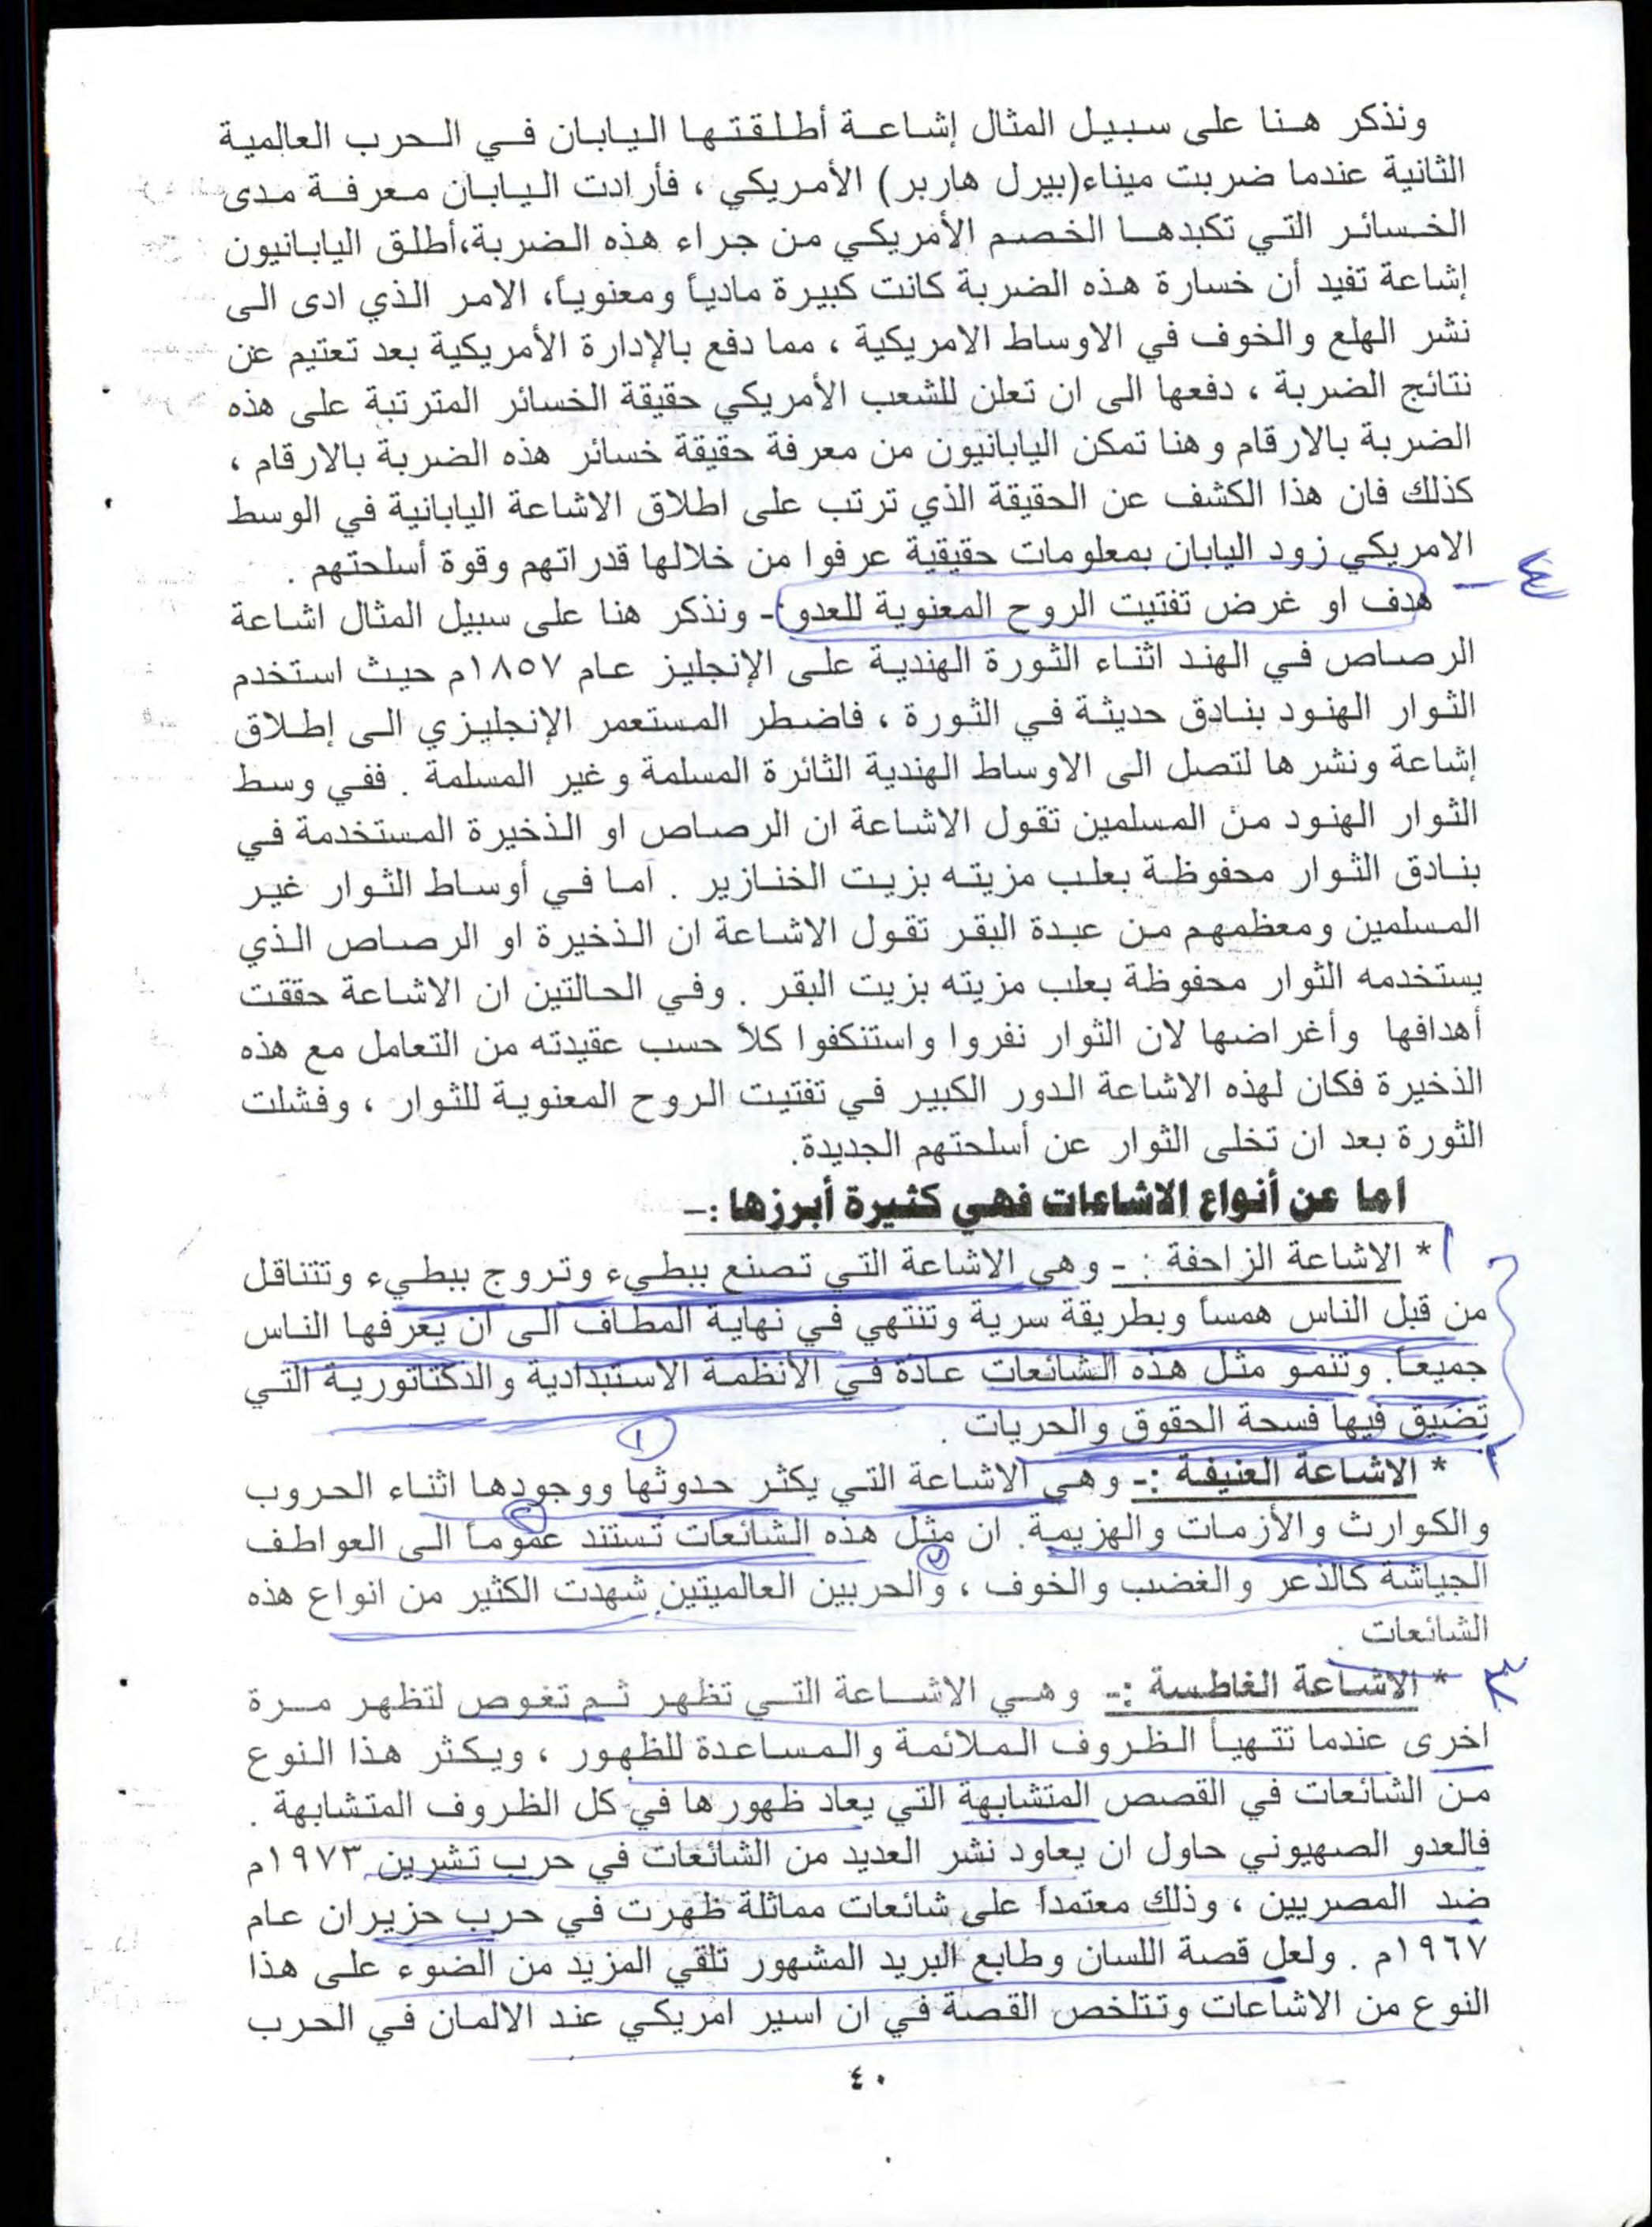 ونذكر هنا على سبيل المثال إشاعة أطلقتها اليابان في الحرب العالمية
الثانية عندما ضربت ميناء(بيرل هاربر) الأمريكي ، فأرادت اليابان معرفة مدى
الخسائر التي تكبدها الخصم الأمريكي من جراء هذه الضربة،أطلق اليابانيون
إشاعة تفيد أن خسارة هذه الضربة كانت كبيرة مادياً ومعنوياً، الامر الذي ادى الى
نشر الهلع والخوف في الاوساط الامريكية ، مما دفع بالإدارة الأمريكية بعد تعتيم عن
نتائج الضربة ، دفعها الى ان تعلن للشعب الأمريكي حقيقة الخسائر المترتبة على هذه
الضربة بالارقام وهنا تمكن اليابانيون من معرفة حقيقة خسائر هذه الضربة بالارقام ،
كذلك فان هذا الكشف عن الحقيقة الذي ترتب على اطلاق الاشاعة اليابانية في الوسط
الامريكي زود اليابان بمعلومات حقيقية عرفوا من خلالها قدراتهم وقوة أسلحتهم .
٤- هدف او غرض تفتيت الروح المعنوية للعدو:- ونذكر هنا على سبيل المثال اشاعة
الرصاص في الهند اثناء الثورة الهندية على الإنجليز عام ١٨٥٧م حيث استخدم
الثوار الهنود بنادق حديثة في الثورة ، فاضطر المستعمر الإنجليزي الى إطلاق
إشاعة ونشرها لتصل الى الاوساط الهندية الثائرة المسلمة وغير المسلمة . ففي وسط
الثوار الهنود من المسلمين تقول الاشاعة ان الرصاص او الذخيرة المستخدمة في
بنادق الثوار محفوظة بعلب مزيته بزيت الخنازير . اما في أوساط الثوار غير
المسلمين ومعظمهم من عبدة البقر تقول الاشاعة ان الذخيرة او الرصاص الذي
يستخدمه الثوار محفوظة بعلب مزيته بزيت البقر . وفي الحالتين ان الاشاعة حققت
أهدافها وأغراضها لان الثوار نفروا واستنكفوا كلاً حسب عقيدته من التعامل مع هذه
الذخيرة فكان لهذه الاشاعة الدور الكبير في تفتيت الروح المعنوية للثوار ، وفشلت
الثورة بعد ان تخلى الثوار عن أسلحتهم الجديدة.
اما عن أنواع الاشاعات فهي كثيرة أبرزها :-
١ * الاشاعة الزاحفة :- وهي الاشاعة التي تصنع ببطيء وتروج ببطيء وتتناقل
من قبل الناس همساً وبطريقة سرية وتنتهي في نهاية المطاف الى ان يعرفها الناس
جميعاً. وتنمو مثل هذه الشائعات عادة في الأنظمة الاستبدادية والدكتاتورية التي
تضيق فيها فسحة الحقوق والحريات .
١
٢ * الاشاعة العنيفة :- وهي الاشاعة التي يكثر حدوثها ووجودها اثناء الحروب
والكوارث والأزمات والهزيمة. ان مثل هذه الشائعات تستند عموماً الى العواطف
الجياشة كالذعر والغضب والخوف ، والحربين العالميتين شهدت الكثير من انواع هذه
الشائعات .
٣ * الاشاعة الغاطسة :- وهي الاشاعة التي تظهر ثم تغوص لتظهر مرة
اخرى عندما تتهيأ الظروف الملائمة والمساعدة للظهور ، ويكثر هذا النوع
من الشائعات في القصص المتشابهة التي يعاد ظهورها في كل الظروف المتشابهة .
فالعدو الصهيوني حاول ان يعاود نشر العديد من الشائعات في حرب تشرين ١٩٧٣م
ضد المصريين ، وذلك معتمداً على شائعات مماثلة ظهرت في حرب حزيران عام
١٩٦٧م . ولعل قصة اللسان وطابع البريد المشهور تلقي المزيد من الضوء على هذا
النوع من الاشاعات وتتلخص القصة في ان اسير امريكي عند الالمان في الحرب
٤٠